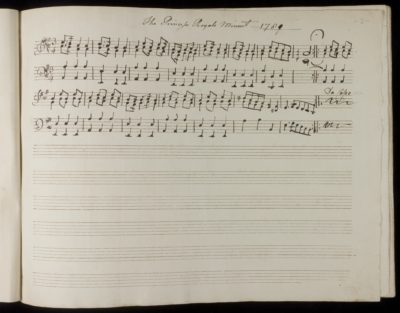 The Princess Royals Minuet 1789
Da Capo